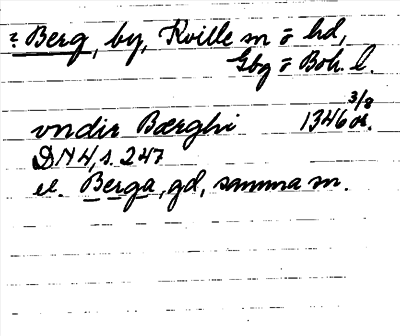 ? Berg, by, Kville sn o hd,
Gbg o Boh. l.
vndir Bærghi 1346 3/8 or.
DN 4, s. 247
el. Berga, gd, samma sn.